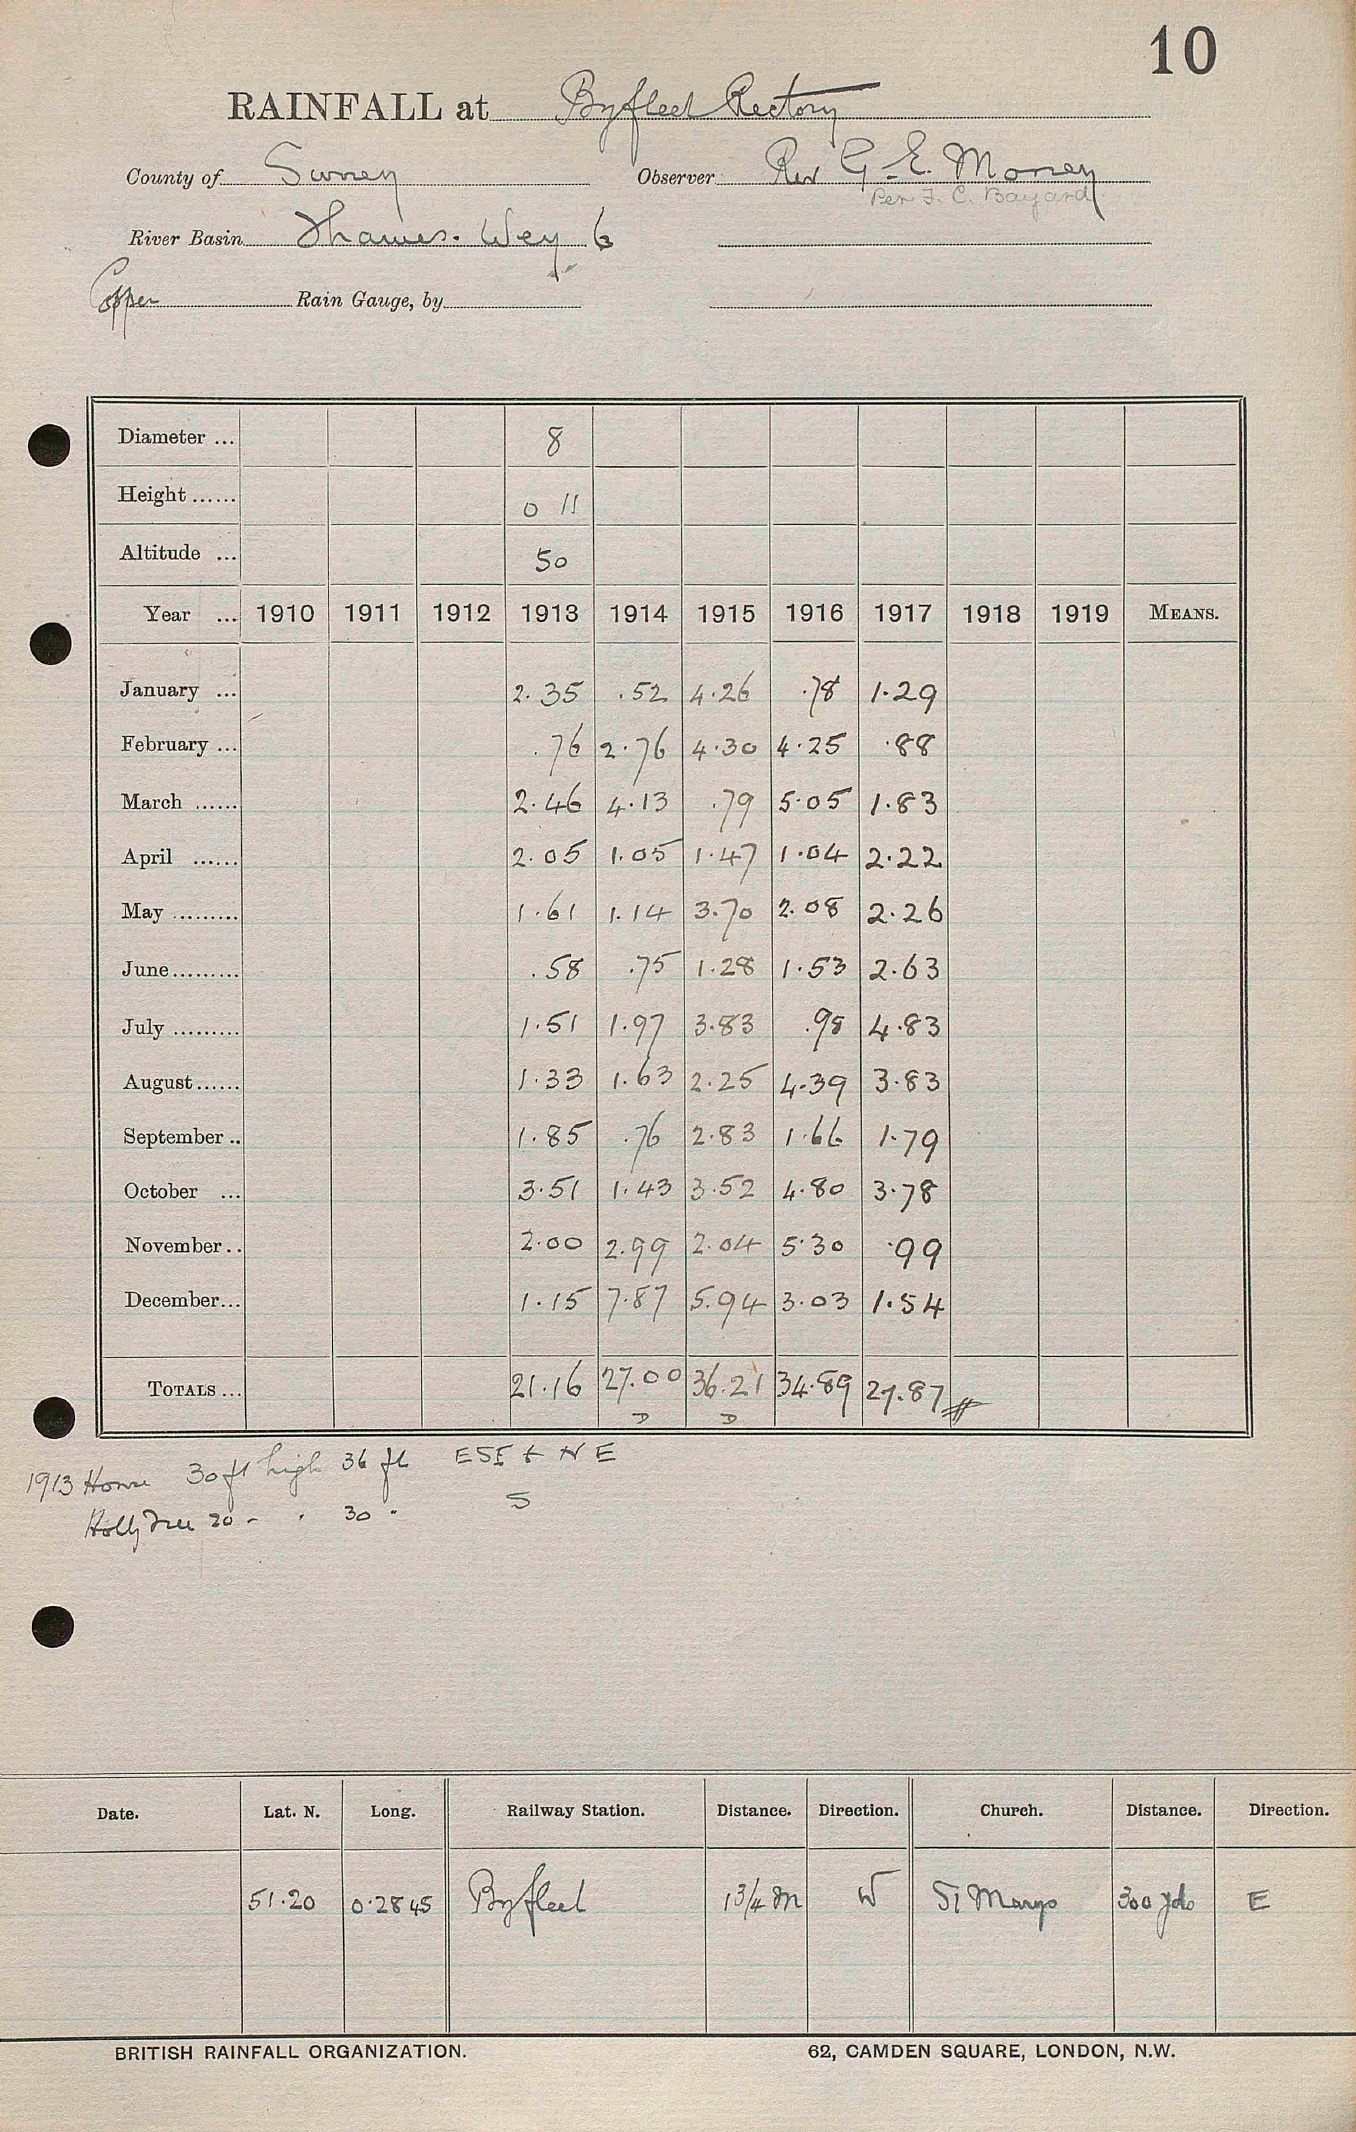 10
RAINFALL at Byfleet Rectory
County of Surrey Observer Rev G. E. Money
Per F. C. Bayard
River Basin Thames. Wey 6
Copper Rain Gauge, by
Diameter ... 8
Height ...... 0 11
Altitude ... 50
Year ... 1910 1911 1912 1913 1914 1915 1916 1917 1918 1919 MEANS.
January ... 2.35 .52 4.26 .78 1.29
February ... .76 2.76 4.30 4.25 .88
March ...... 2.46 4.13 .79 5.05 1.83
April ...... 2.05 1.05 1.47 1.04 2.22
May ......... 1.61 1.14 3.70 2.08 2.26
June ......... .58 .75 1.28 1.53 2.63
July ......... 1.51 1.97 3.83 .98 4.83
August ...... 1.33 1.63 2.25 4.39 3.83
September .. 1.85 .76 2.83 1.66 1.79
October ... 3.51 1.43 3.52 4.80 3.78
November .. 2.00 2.99 2.04 5.30 .99
December... 1.15 7.87 5.94 3.03 1.54
TOTALS ... 21.16 27.00 36.21 34.89 27.87
D D
1913 House 30 ft high 36 ft ESE & NE
Holly Tree 20 - . 30 " S
Date. Lat. N. Long. Railway Station. Distance. Direction. Church. Distance. Direction.
51.20 0.28 45 Byfleet 1 3/4 M W St Marys 300 yds E
BRITISH RAINFALL ORGANIZATION. 62, CAMDEN SQUARE, LONDON, N.W.